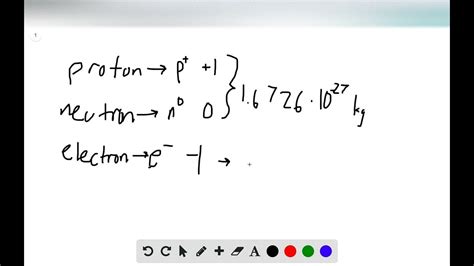 proton → p⁺ +1
neutron → n⁰ 0 } 1.6726·10²⁷ kg
electron → e⁻ -1 →